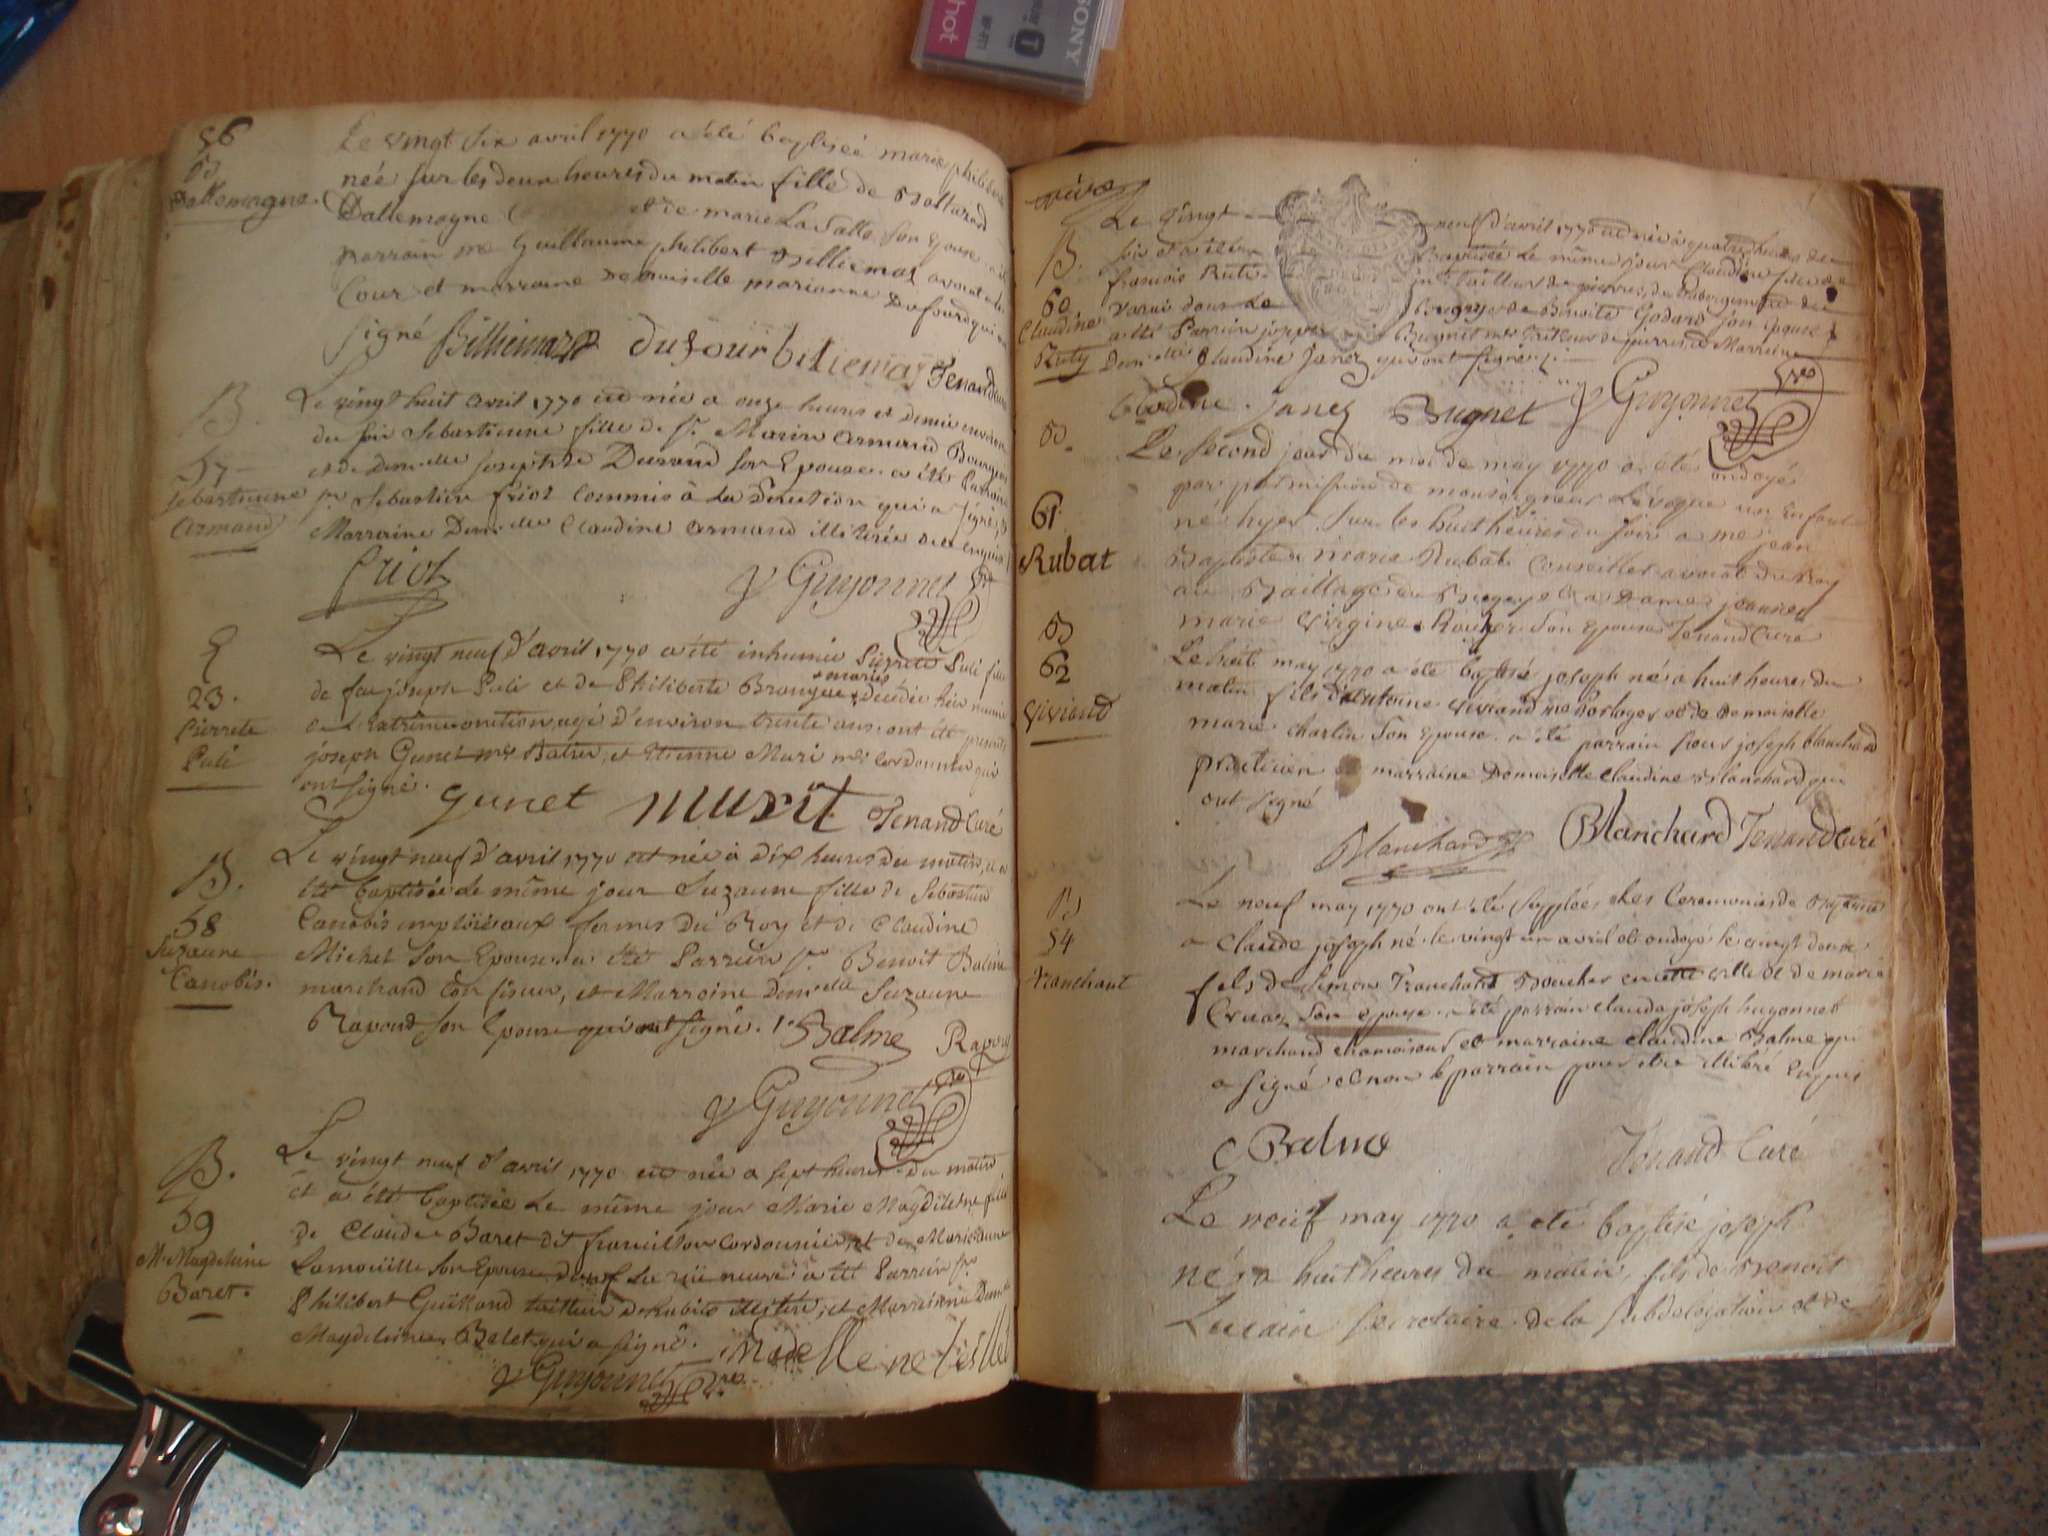 56
B
Dallemagne.
Le vingt six avril 1770 a été baptisée marie philiberte
née sur les deux heures du matin fille de Baltazard
Dallemagne et de marie La Salle son Epouse a été
parrain me Guillaume philibert Billiemaz avocat a la
Cour et marraine Demoiselle marianne Dufour qui ont
signé Billiemaz dufour billiemaz Tenand
B.
57
Sebastienne
Armand
Le vingt huit avril 1770 est née a onze heures et demie environ
du soir Sebastienne fille de Sr. Marin Armand Bourgeois
et de Demelle Josephte Durand son Epouse. a été Parrain
Sr Sebastien friot Commis à la Direction qui a signé, et
Marraine Demelle Claudine Armand illitérée de ce enquise
friot
Guyonnet
E
23.
Pierrette
Puli
Le vingt neuf d'avril 1770 a été inhumée Pierrette Puli fille
de feu joseph Puli et de Philiberte mariés décédée hier munie
de l'extrême onction, agé d'environ trente ans. ont été présents
joseph Gunet me et Etienne Muri me cordonnier qui
ont signé. gunet murit Tenand Curé
B.
58
Suzanne
Canobis.
Le vingt neuf d'avril 1770 est née à dix heures du matin, et a
été baptisée le même jour Suzanne fille de Sebastien
Canobis emploié aux fermes du Roy et de Claudine
Michel son Epouse. a été Parrain Sr Benoit Balme
marchand et Marraine Demelle Suzanne
Ravoud son Epouse qui ont signé. Balme Ravoud
Guyonnet
B.
59
M. Magdelaine
Baret.
Le vingt neuf d'avril 1770 est née a sept heures du matin
et a été baptisée le même jour Marie Magdeleine fille
de Claude Baret dit cordonnier et de
Lamouille son Epouse a été Parrain Sr
Philibert Guilland tailleur d'habits illitéré, et Marraine Demlle
Magdeleine qui a signé. Madellene
Guyonnet
B.
60
Claudine
Ruty
Le vingt neuf d'avril 1770 est née à quatre heures du
soir et a été baptisée le même jour Claudine fille de
françois Ruti tailleur de pierres, de
dans le Bugey et de Benoite Godard son epouse
a été Parrain joseph Bugnet me tailleur de pierres et Marraine
Demelle Claudine Janez qui ont signé.
Claudine Janez Bugnet Guyonnet
B.
61
Rubat
Le second jour du moi de may 1770 a été ondoyé
par permission de monseigneur L'évêque un Enfant
né hyer sur les huit heures du soir a me jean
Baptiste marie Rubat Conseiller avocat du Roy
au Baillage du Bugey et a Dame jeanne
marie Virginie son epouse Tenand Curé
B
62
Viviand
Le huit may 1770 a été baptisé joseph né a huit heures du
matin fils d'antoine viviand me horloger et de demoiselle
marie charlin son Epouse. a été parrain sieur joseph blanchard
praticien et marraine Demoiselle Claudine Blanchard qui
ont signé
Blanchard Blanchard Tenand Curé
B
54
tranchant
Le neuf may 1770 ont été supplées les Ceremonies de Baptême
a Claude joseph né le vingt un avril et ondoyé le vingt deux
fils de Simon Tranchant Boucher en cette ville et de marie
Cruaz son epouse. a été parrain claude joseph huyonnet
marchand chamoiseur et marraine claudine Balme qui
a signé et non le parrain pour etre illitéré Enquis
C Balme
Tenand Curé
Le neuf may 1770 a été baptisé joseph
né a huit heures du matin, fils de Benoit
Secretaire de la Subdelegation et de
SONY